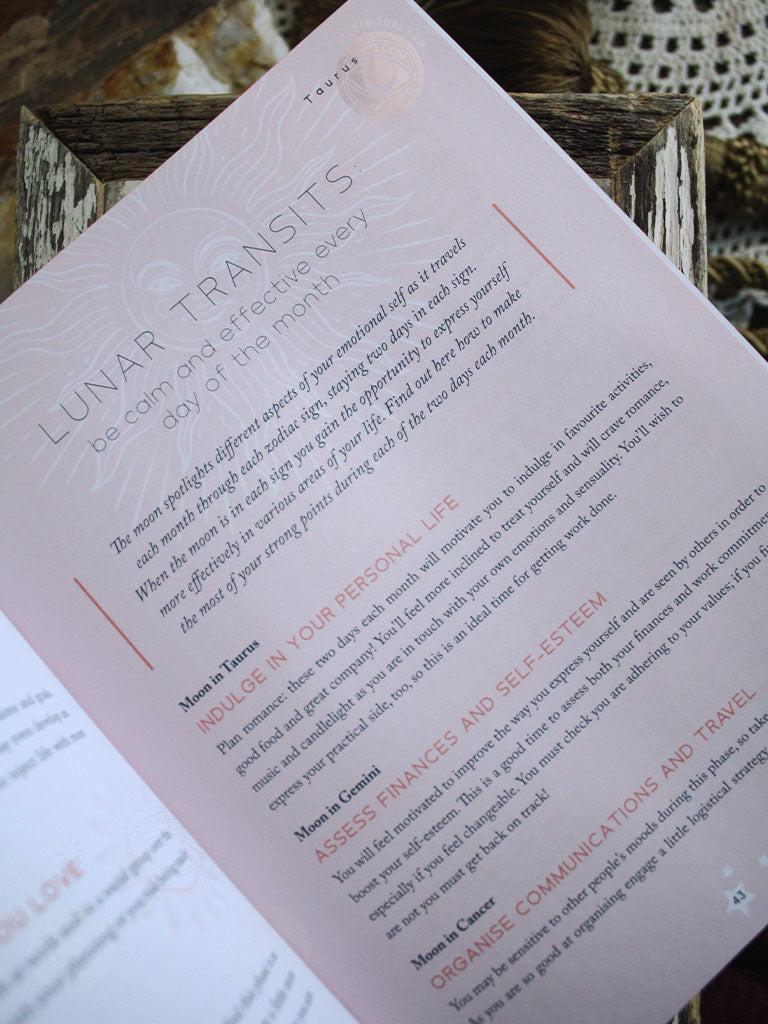 Taurus
LUNAR TRANSITS:
be calm and effective every
day of the month
The moon spotlights different aspects of your emotional self as it travels
each month through each zodiac sign, staying two days in each sign.
When the moon is in each sign you gain the opportunity to express yourself
more effectively in various areas of your life. Find out here how to make
the most of your strong points during each of the two days each month.
Moon in Taurus
INDULGE IN YOUR PERSONAL LIFE
Plan romance: these two days each month will motivate you to indulge in favourite activities,
good food and great company! You'll feel more inclined to treat yourself and will crave romance,
music and candlelight as you are in touch with your own emotions and sensuality. You'll wish to
express your practical side, too, so this is an ideal time for getting work done.
Moon in Gemini
ASSESS FINANCES AND SELF-ESTEEM
You will feel motivated to improve the way you express yourself and are seen by others in order to
boost your self-esteem. This is a good time to assess both your finances and work commitmen
especially if you feel changeable. You must check you are adhering to your values; if you fi
are not you must get back on track!
Moon in Cancer
ORGANISE COMMUNICATIONS AND TRAVEL
You may be sensitive to other people's moods during this phase, so take
As you are so good at organising engage a little logistical strategy
43
OU LOVE